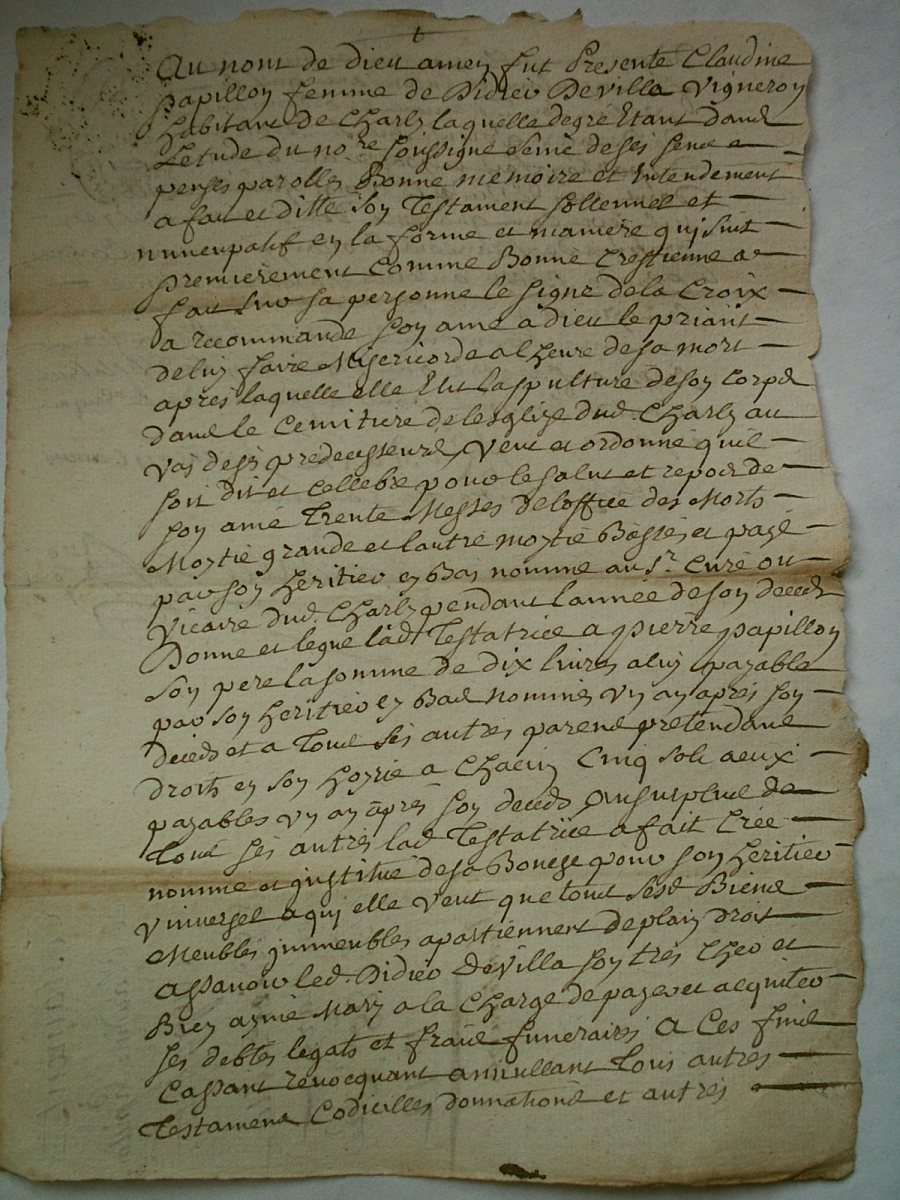 Au nom de dieu amen fut Presente Claudine
papillon femme de Didier Devilla Vigneron
habitant de Charly laquelle degré Etant dans
Letude du no.re soussigne Seine de ses sens
penses parolles Bonne memoire et Entendement
a fait et ditte son Testament sollennel et
nuncupatif en la forme et maniere qui suit
premierement comme Bonne Crestienne a
fait sur sa personne le signe de la Croix
a recommande son ame a dieu le priant
de luy faire Misericorde a l heure de sa mort
apres laquelle elle Elit la spulture de son Corps
dans le Cemitiere de lesglize dud. Charly au
vas de ses predecesseurs, Veut et ordonne quil
soit dit et cellebré pour le salut et repos de
son ame Trente Messes de loffice des Morts
Moytié grande et lautre moytié Basses et payé
par son heritier en Bas nomme au Sr. Curé ou
Vicaire dud. Charly pendant lannée de son deceds
Donne et legue lad. Testatrice a pierre papillon
son pere la somme de dix livres a luy payable
par son heritier en Bas nommés un an apres son
deceds et a tous ses autres parens pretendans
droits en son hoyrie a Chacun Cinq sols a eux
payables un an apres son deceds Au surplus de
tous ses autres lad Testatrice a fait Crée
nommé et institué de sa Bouche pour son heritier
universel a qui elle veut que tous sesd Biens
Meubles immeubles apartiennent de plain droit
assavoir led. Didier Devilla son tres Cher et
Bien aymé Mary a la Charge de payer et acquiter
ses debtes legats et frais funeraires A Ces fins
Cassant revocquant annullant tous autres
Testamens Codicilles donnations et autres